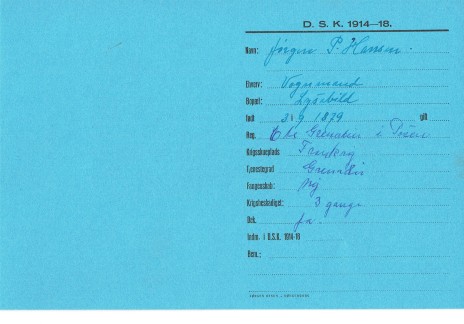 D. S. K. 1914—18.
Navn: Jørgen P. Hansen.
Erhverv: Vognmand
Bopæl: Lysabild
født 3/9 1879 gift
Reg. 6te Grenader i Posen
Krigsskueplads Frankrig
Tjenestegrad Grenadir
Fangenskab: Nej
Krigsbeskadiget: 3 gange
Dek. ja.
Indm. i D.S.K. 1914-18
Bem.: